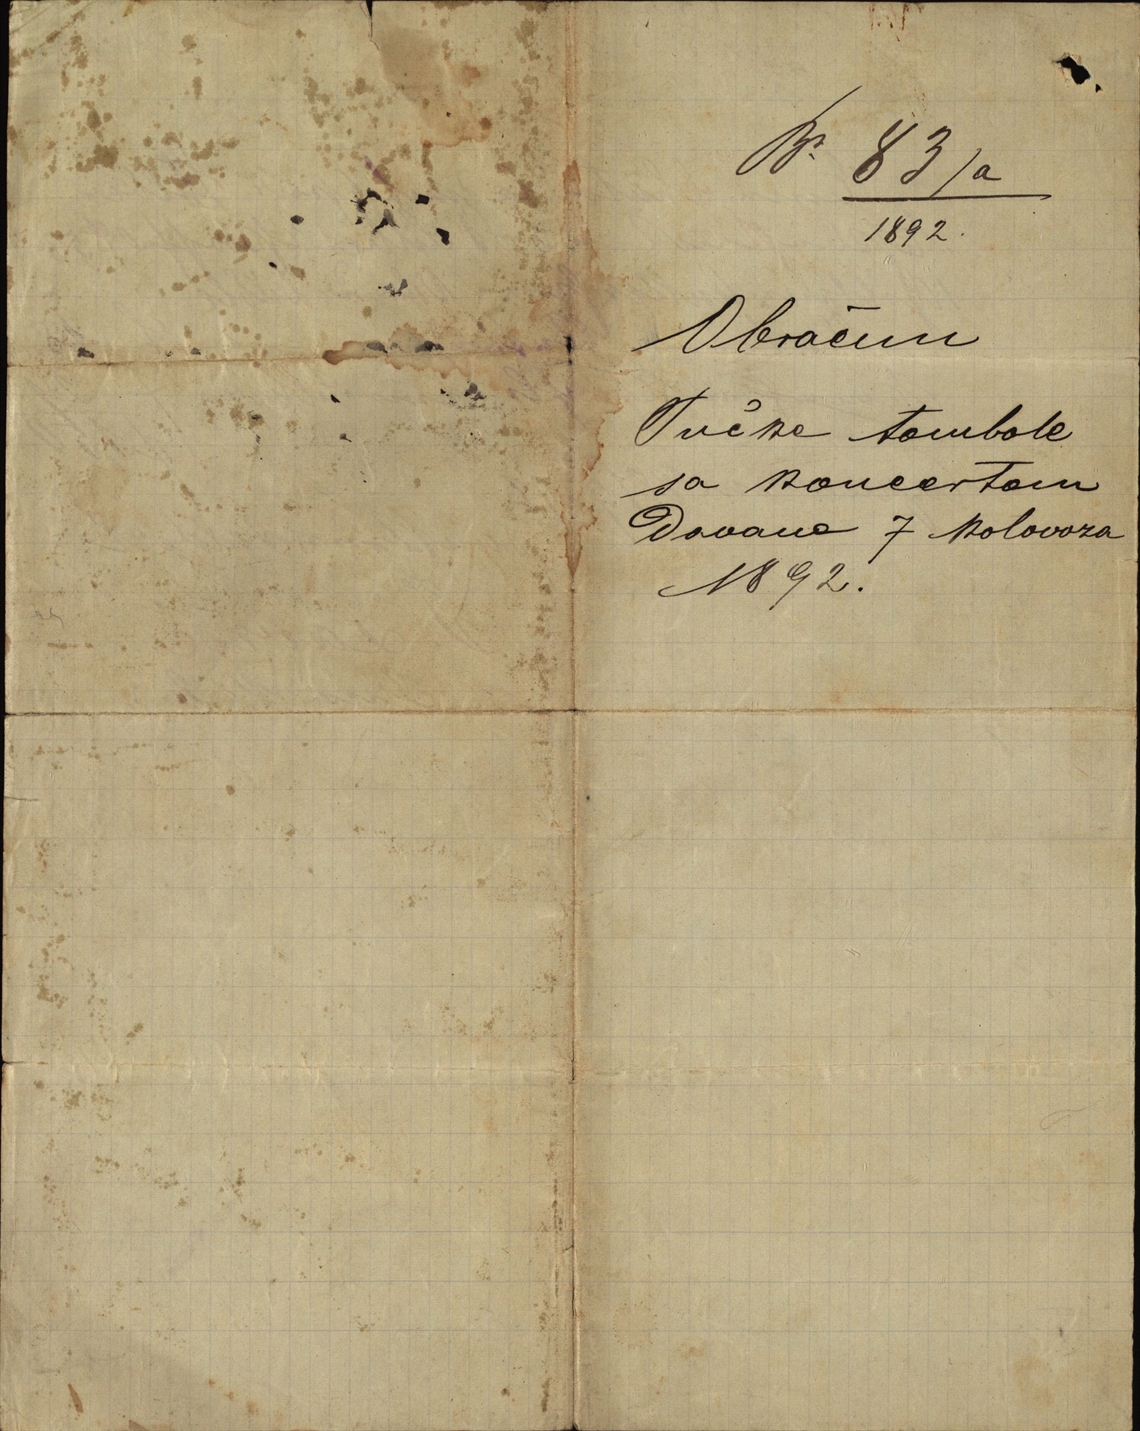 Br. 83/a
1892.
Obračun
Pučke tombole
sa koncertom
Davane 7 kolovoza
1892.